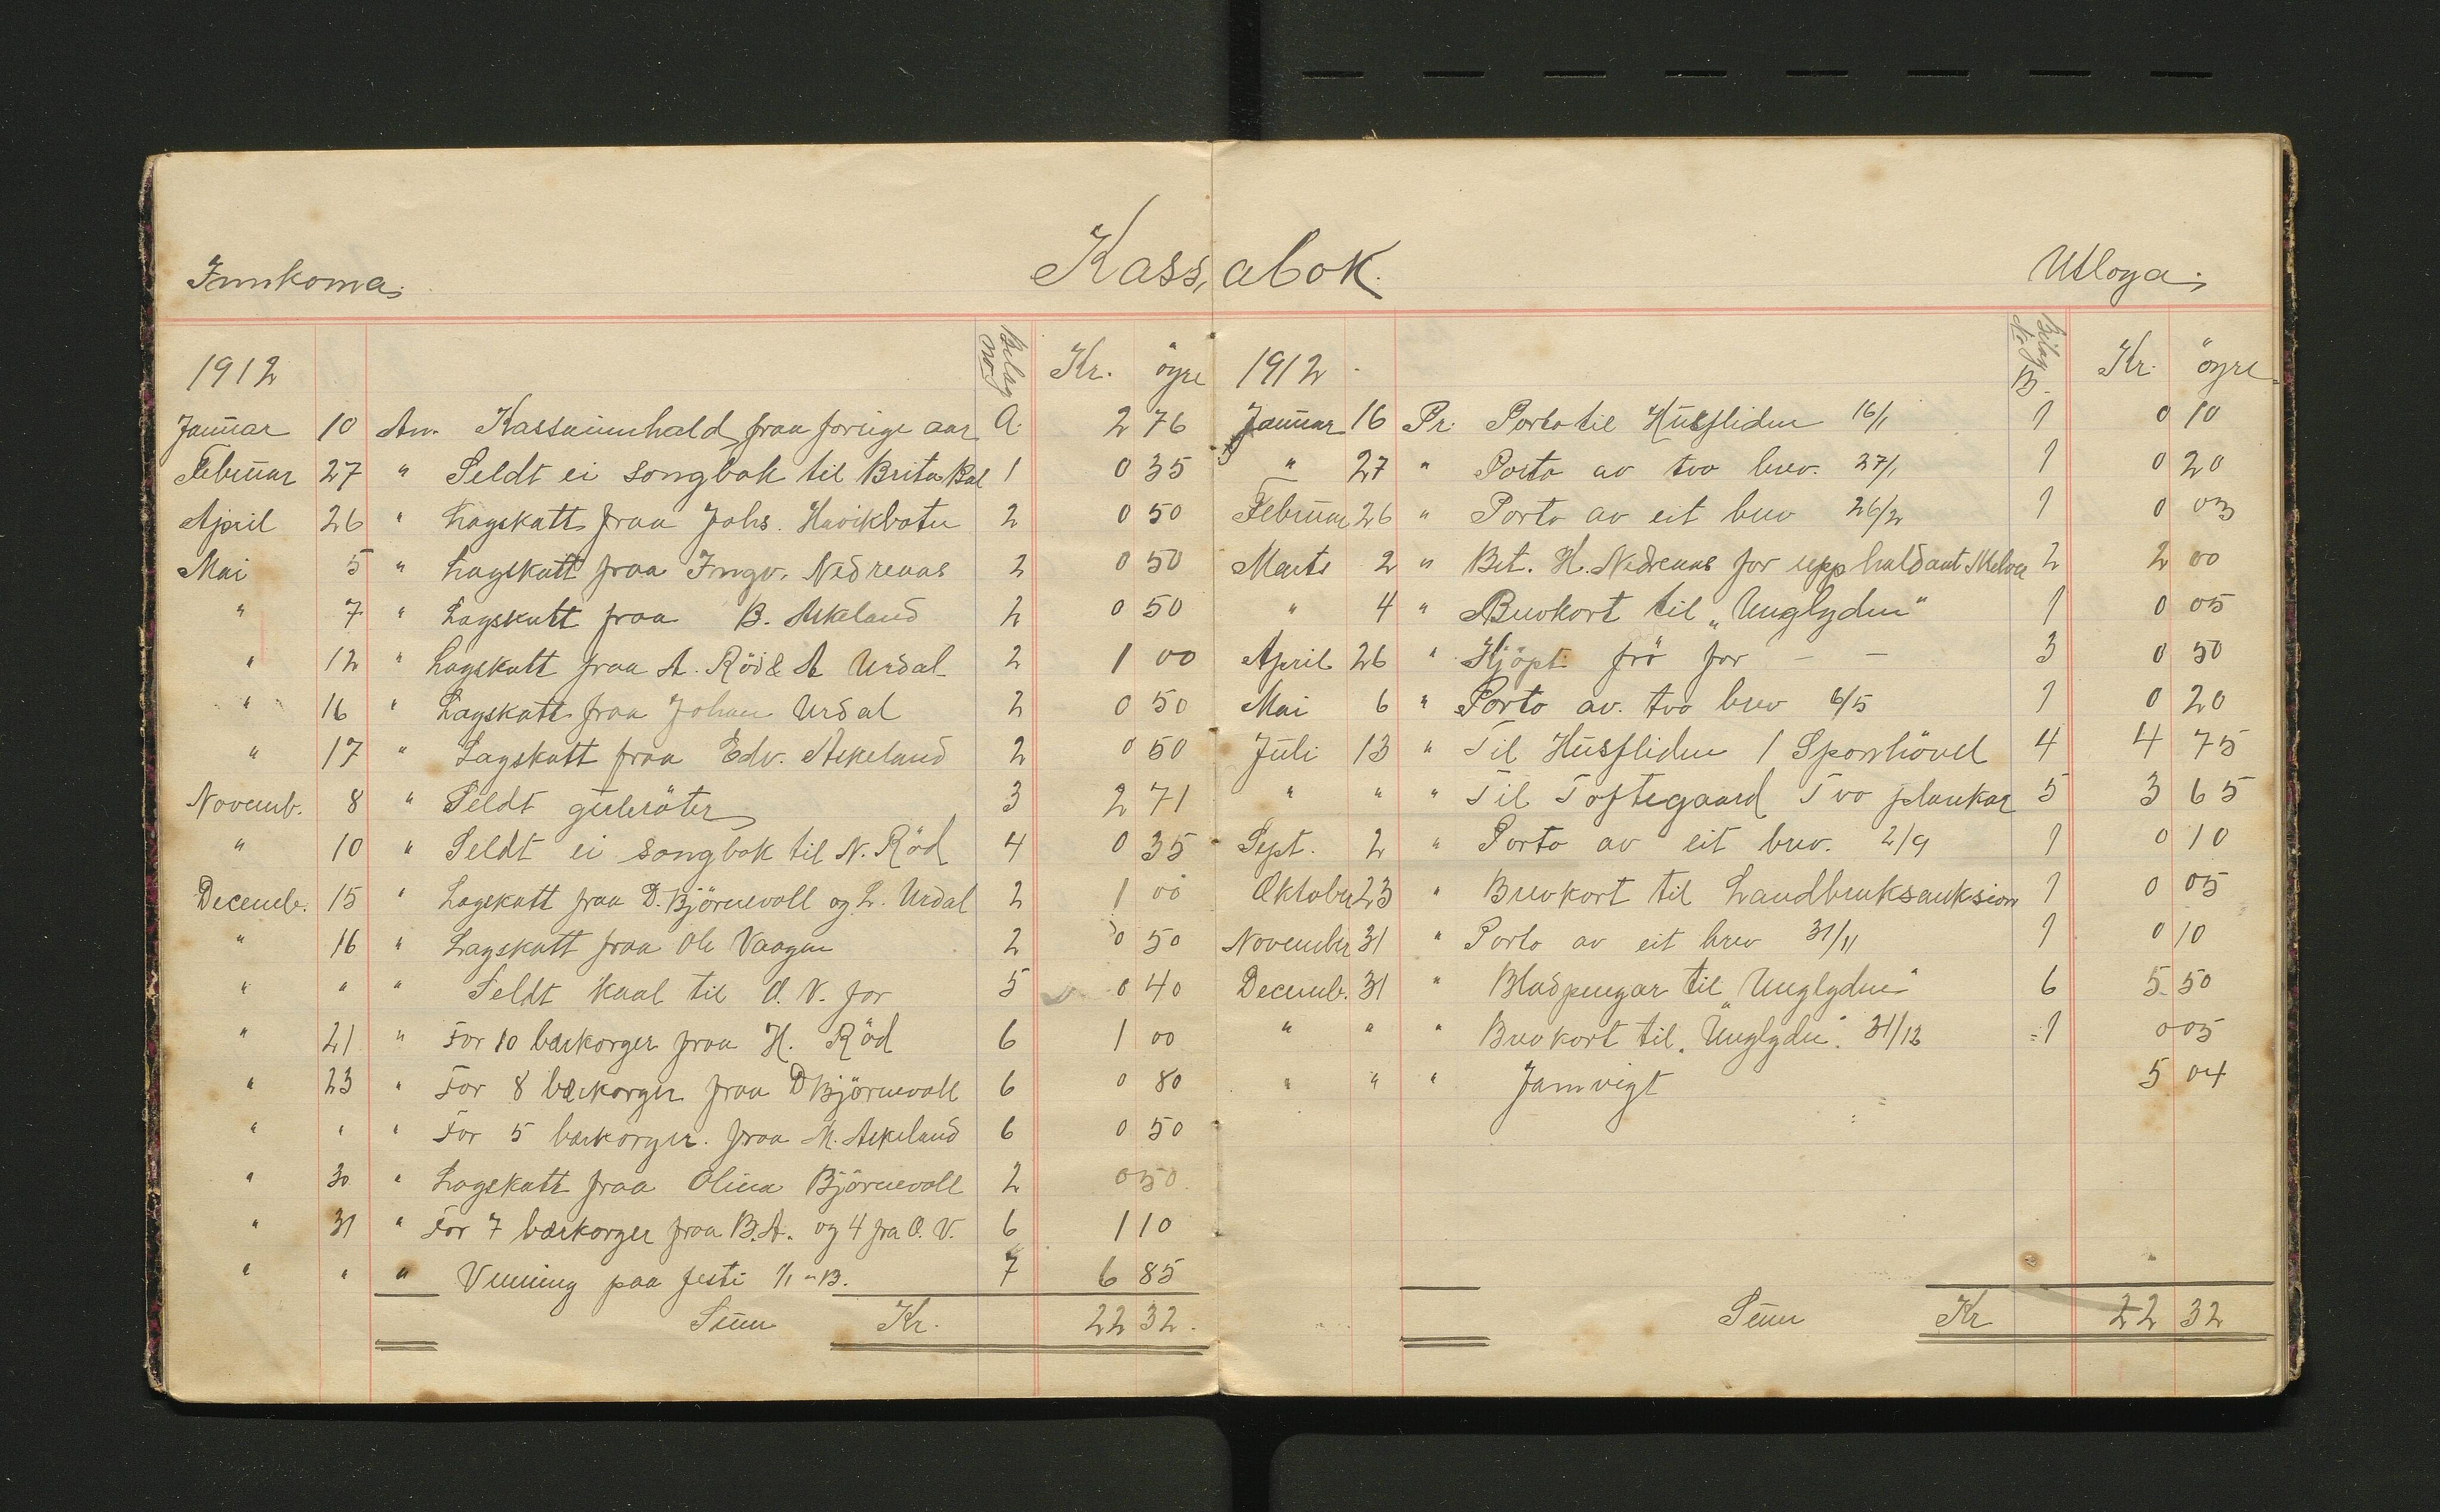 Kassabok.
Innkoma
1912 Bilag no Kr. öyre
Januar 10 An. Kassainnhald fraa forrige aar A. 2 76
Februar 27 " Seldt ei songbok til Brita Bal 1 0 35
April 26 " Lagskatt fraa Johs. Havikbotn 2 0 50
Mai 5 " Lagskatt fraa Ingv. Nedrenaas 2 0 50
" 7 " Lagskatt fraa B. Askeland 2 0 50
" 12 " Lagskatt fraa A. Röd & A Urdal 2 1 00
" 16 " Lagskatt fraa Johan Urdal 2 0 50
" 17 " Lagskatt fraa Edv. Askeland 2 0 50
Novemb. 8 " Seldt guleröter 3 2 71
" 10 " Seldt ei songbok til N. Röd 4 0 35
Decemb. 15 " Lagskatt fraa D. Björnevoll og L. Urdal 2 1 00
" 16 " Lagskatt fraa Ole Vaagen 2 0 50
" " " Seldt kaal til O. V. for 5 0 40
" 21 " For 10 bærkorger fraa H. Röd 6 1 00
" 23 " For 8 bærkorger fraa D Björnevoll 6 0 80
" " " For 5 bærkorger. fraa M. Askeland 6 0 50
" 30 " Lagskatt fraa Olina Björnevoll 2 0 50
" 31 " For 7 bærkorger fraa B. A. og 4 fra O. V. 6 1 10
" " " Vinning paa festi 1/1 - 13. 7 6 85
Sum Kr. 22 32.
Utloga
1912 Bilag No B. Kr. öyre
Januar 16 Pr. Porto til Husfliden 16/1 1 0 10
" 27 " Porto av tvo brev. 27/1 1 0 20
Februar 26 " Porto av eit brev 26/2 1 0 03
Marts 2 " Bet. H. Nedrenaas for upphald ant Melvær 2 2 00
" 4 " Brevkort til „Unglyden" 1 0 05
April 26 " Kjöpt frö for — — 3 0 50
Mai 6 " Porto av. tvo brev 6/5 1 0 20
Juli 13 " Til Husfliden 1 Sponhövel 4 4 75
" " " Til Toftegaard Tvo plankar 5 3 65
Sept. 2 " Porto av eit brev. 2/9 1 0 10
Oktober 23 " Brevkort til Landbruksauksion 1 0 05
November 31 " Porto av eit brev 31/11 1 0 10
Decemb. 31 " Bladpengar til „Unglyden" 6 5 50
" " " Brevkort til „Unglyden". 31/12 1 0 05
" " " Jamvigt 5 04
Sum Kr 22 32